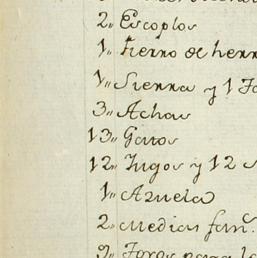 2,, Escoplos
1,, fierro de herr
1,, Sierra y 1
3,, Achas
13,, Gatos
12,, Iugos y 12
1,, Azuela
2,, medias fan.